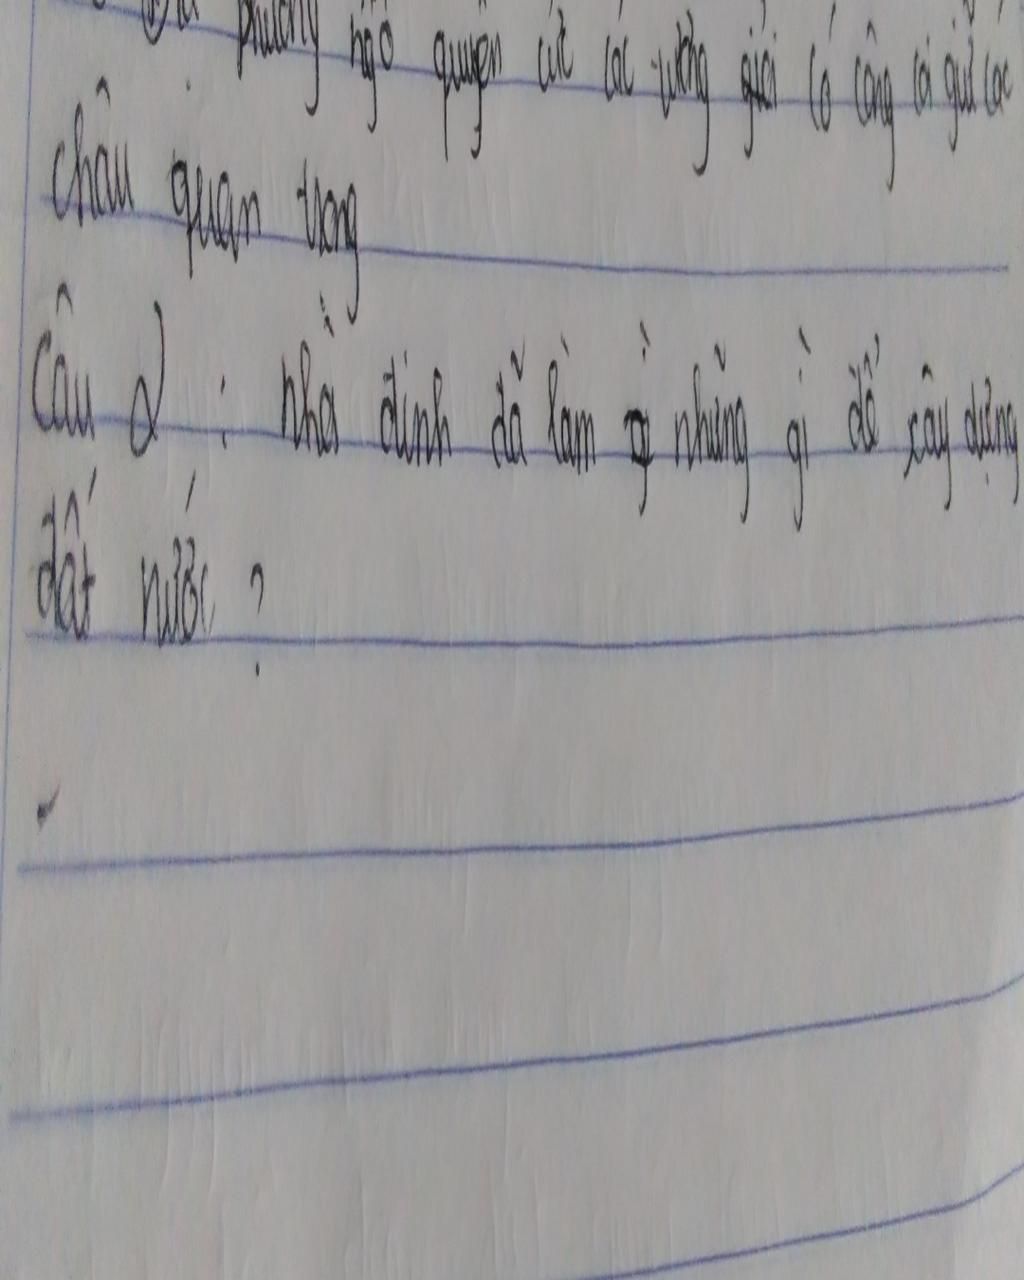 phương ngô quyền cử các tướng giỏi có công coi giữ các
châu quan trọng
Câu 2 : nhà đinh đã làm những gì để xây dựng
đất nước ?
-